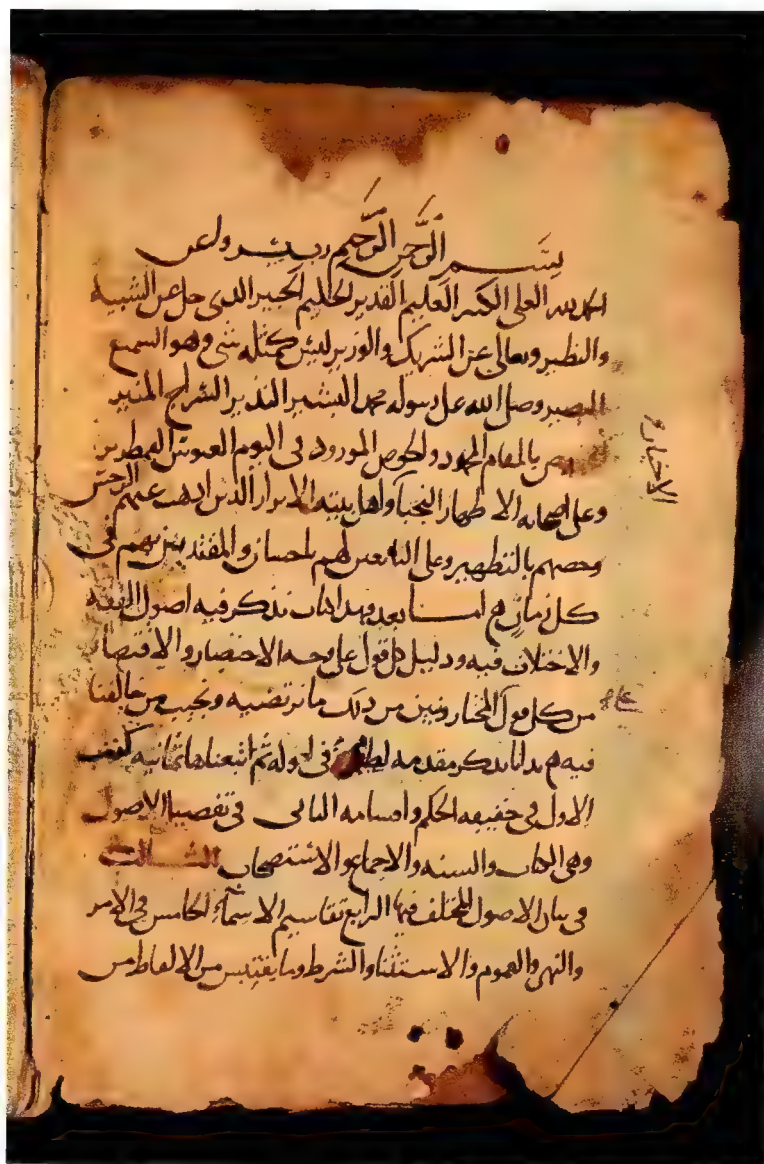 بسم الله الرحمن الرحيم رب يسر واعن
الحمد لله العلي الكبير العليم القدير الحكيم الخبير الذي جل عن الشبيه
والنظير وتعالى عن الشريك والوزير ليس كمثله شي وهو السميع
البصير وصلى الله على رسوله محمد البشير النذير السراج المنير
بالمقام المحمود والحوض المورود في اليوم العبوس القمطرير
وعلى اصحابه الاطهار النجبا واهل بيته الابرار الذين اذهب عنهم الرجس
وخصهم بالتطهير وعلى التابعين لهم باحسان والمقتدين بهم في
كل زمان امـــا بعد فهذا كتاب نذكر فيه اصول الفقه
والاختلاف فيه ودليل كل قول على وجه الاختصار والاقتصار
من كل قول المختار ونبين من ذلك ما نرتضيه ونجيب من خالفنا
فيه بدانا بذكر مقدمه لطيفة في اوله ثم اتبعناها ثمانيه
الاول في حقيقه الحكم واقسامه الثاني في تفصيل الاصول
وهي الكتاب والسنه والاجماع والاستصحاب الثـــالث
في بيان الاصول المختلف فيها الرابع تقاسيم الاسماء الخامس في الامر
والنهي والعموم والاستثنا والشرط وما يقتبس من الالفاظ من
الاخبار